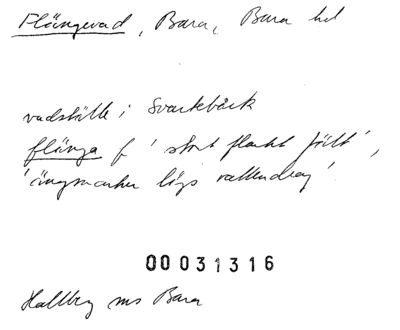 Flängevad, Bara, Bara hd
vadställe i Svartebäck
flänga f 'stort flackt fält',
'ängsmarker längs vattendrag'
00031316
Hallberg ms Bara